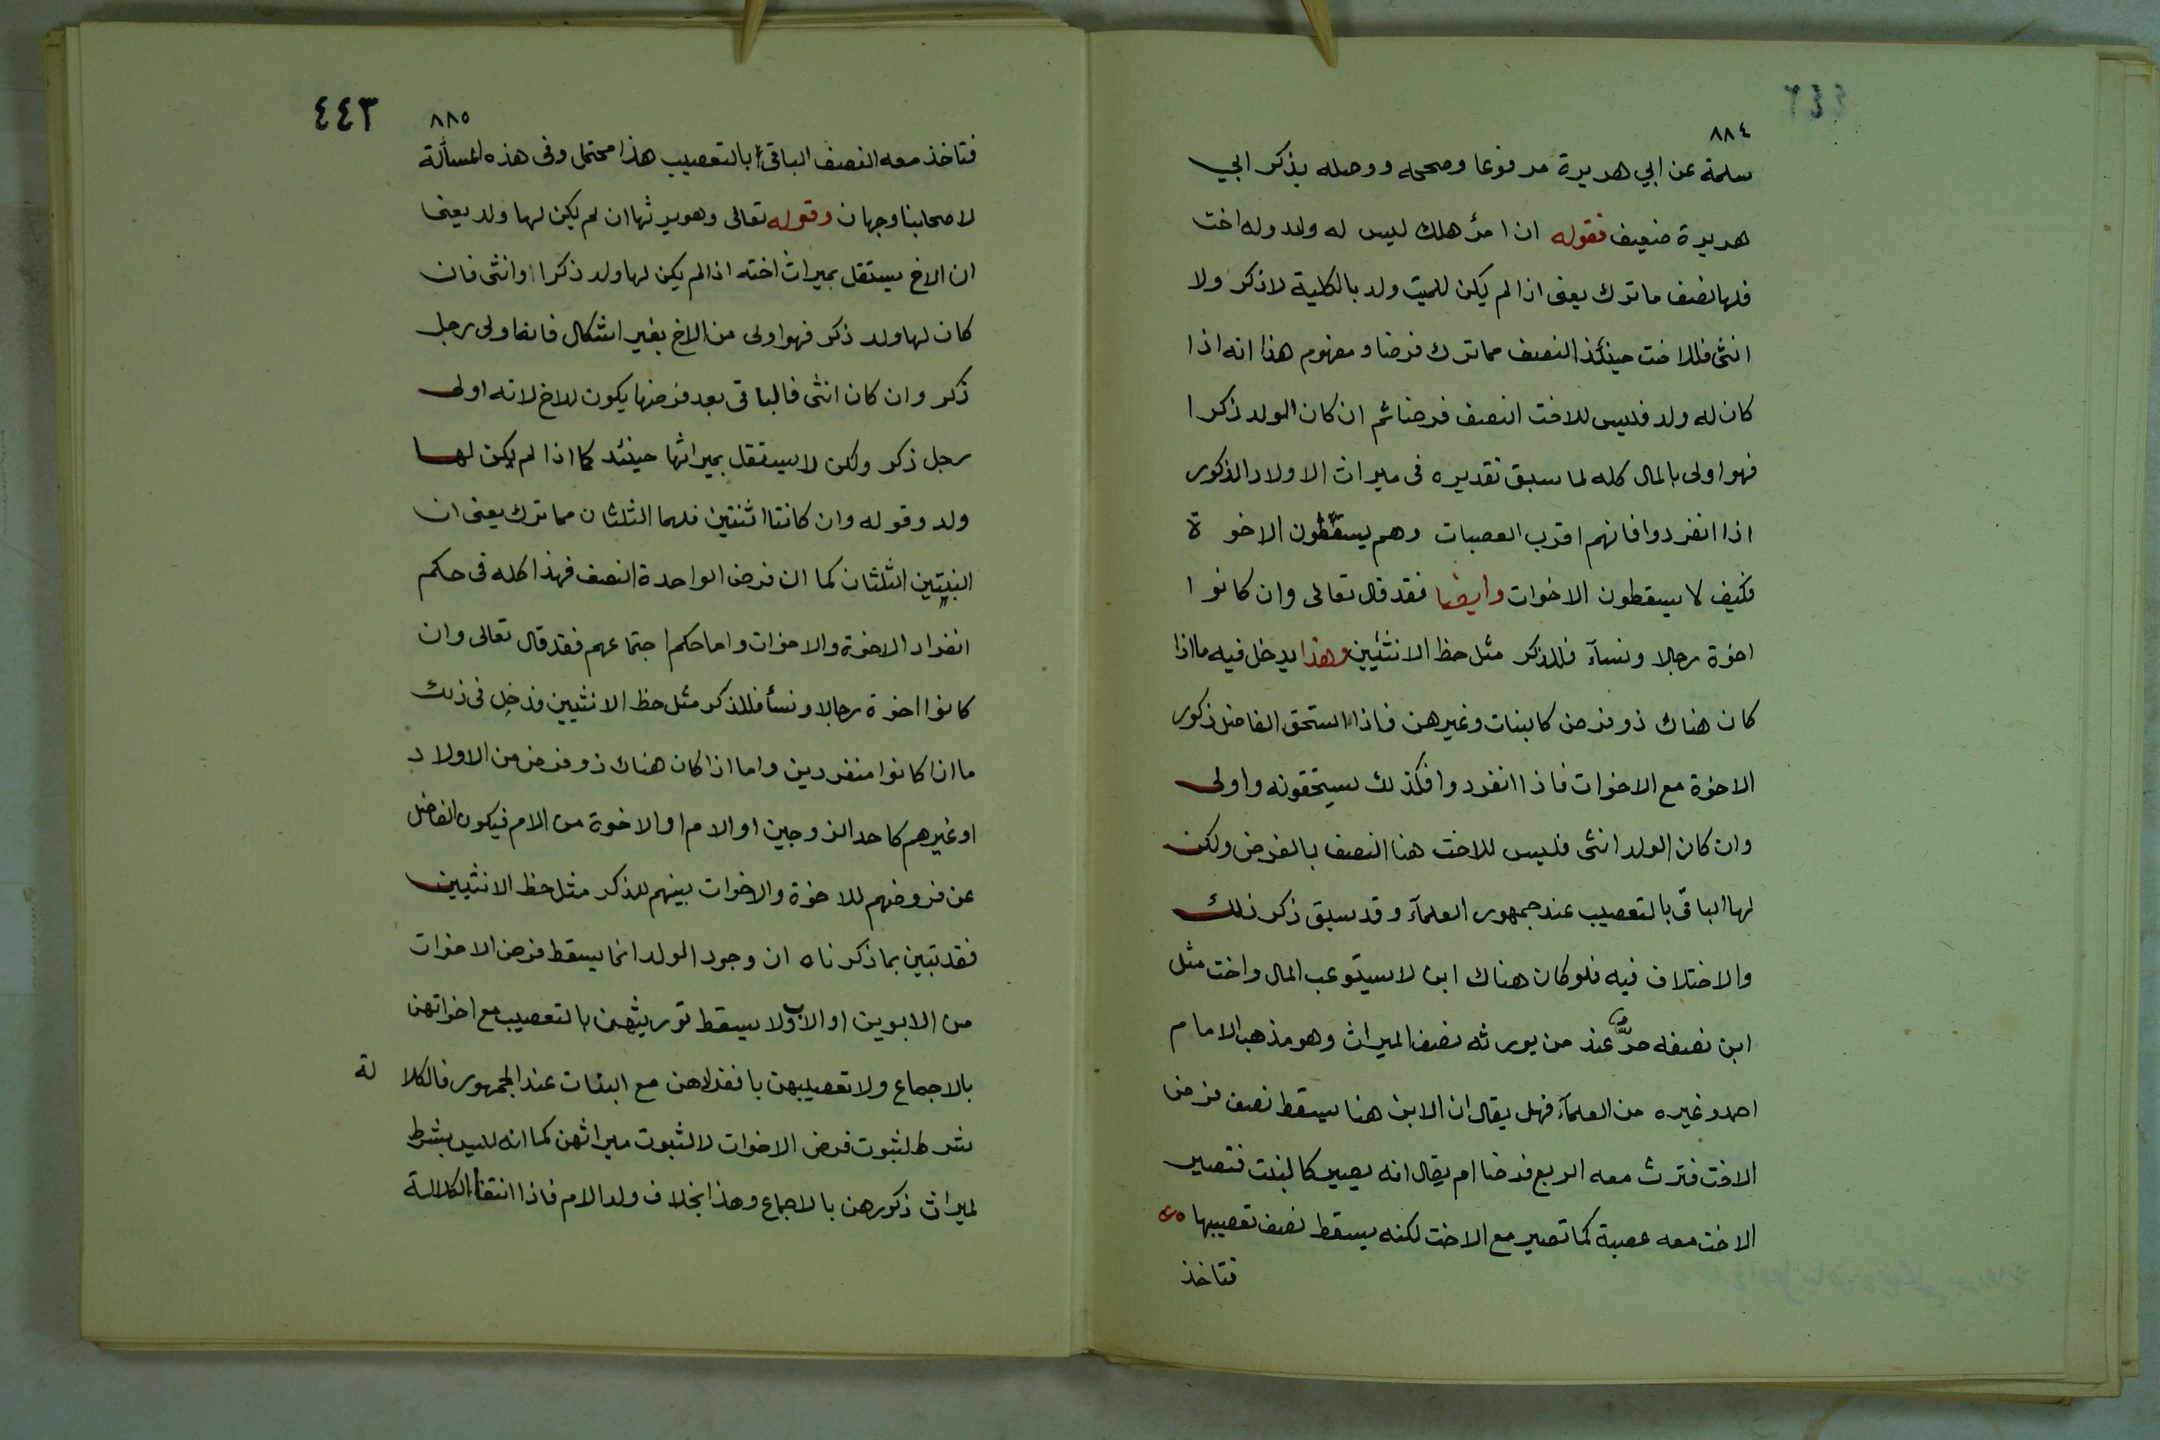 ٨٨٤
سلمة عن ابي هريرة مرفوعا وصححه ووصله بذكر ابي
هريرة ضعيف فقوله ان امرؤ هلك ليس له ولد وله اخت
فلها نصف ما ترك يعنى اذا لم يكن للميت ولد بالكلية لا ذكر ولا
انثى فللاخت حينئذ النصف مما ترك فرضا ومفهوم هذا انه اذا
كان له ولد فليس للاخت النصف فرضا ثم ان كان الولد ذكرا
فهو اولى بالمال كله لما سبق تقديره فى ميراث الاولاد الذكور
اذا انفردوا فانهم اقرب العصبات وهم يسقطون الاخوة
فكيف لا يسقطون الاخوات وايضا فقد قال تعالى وان كانوا
اخوة رجالا ونسآء فللذكر مثل حظ الانثيين وهذا يدخل فيه ما اذا
كان هناك ذو فرض كالبنات وغيرهن فاذا استحق الفاضل ذكور
الاخوة مع الاخوات فاذا انفردوا فكذلك يستحقونه واولى
وان كان الولد انثى فليس للاخت هنا النصف بالفرض ولكن
لها الباقى بالتعصيب عند جمهور العلمآء وقد سبق ذكر ذلك
والاختلاف فيه فلو كان هناك ابن لا يستوعب المال واخت مثل
ابن نصفه حر عند من يورثه نصف الميراث وهو مذهب الامام
احمد وغيره من العلمآء فهل يقال ان الابن هنا يسقط نصف فرض
الاخت فترث معه الربع فرضا ام يقال انه يصير كالبنت فتصير
الاخت معه عصبة كما تصير مع الاخت لكنه يسقط نصف تعصيبها
فتاخذ
٤٤٣
٨٨٥
فتاخذ معه النصف الباقى بالتعصيب هذا محتمل وفى هذه المسألة
لاصحابنا وجهان وقوله تعالى وهو يرثها ان لم يكن لها ولد يعنى
ان الاخ يستقل بميراث اخته اذا لم يكن لها ولد ذكرا او انثى فان
كان لها ولد ذكر فهو اولى من الاخ بغير اشكال فانه اولى رجل
ذكر وان كان انثى فالباقى بعد فرضها يكون للاخ لانه اولى
رجل ذكر ولكن لا يستقل بميراثها حينئد كما اذا لم يكن لها
ولد وقوله وان كانتا اثنتين فلهما الثلثان مما ترك يعنى ان
الثلثان كما ان فرض الواحدة النصف فهذا كله فى حكم
انفراد الاخوة والاخوات واما حكم اجتماعهم فقد قال تعالى وان
كانوا اخوة رجالا ونسأ فللذكر مثل حظ الانثيين فدخل فى ذلك
ما اذا كانوا منفردين واما اذا كان هناك ذو فرض من الاولاد
او غيرهم كاحد الزوجين او الام او الاخوة من الام فيكون الفاضل
عن فروضهم للاخوة والاخوات بينهم للذكر مثل حظ الانثيين
فقد تبين بما ذكرناه ان وجود الولد انما يسقط فرض الاخوات
من الابوين او الاب ولا يسقط توريثهن بالتعصيب مع اخواتهن
بالاجماع ولا تعصيبهن بانفرادهن مع البنات عند الجمهور فالكلالة
شرط لثبوت فرض الاخوات لا لثبوت ميراثهن كما انه ليس بشرط
لميراث ذكورهن بالاجماع وهذا بخلاف ولد الام فاذا انتفا الكلالة